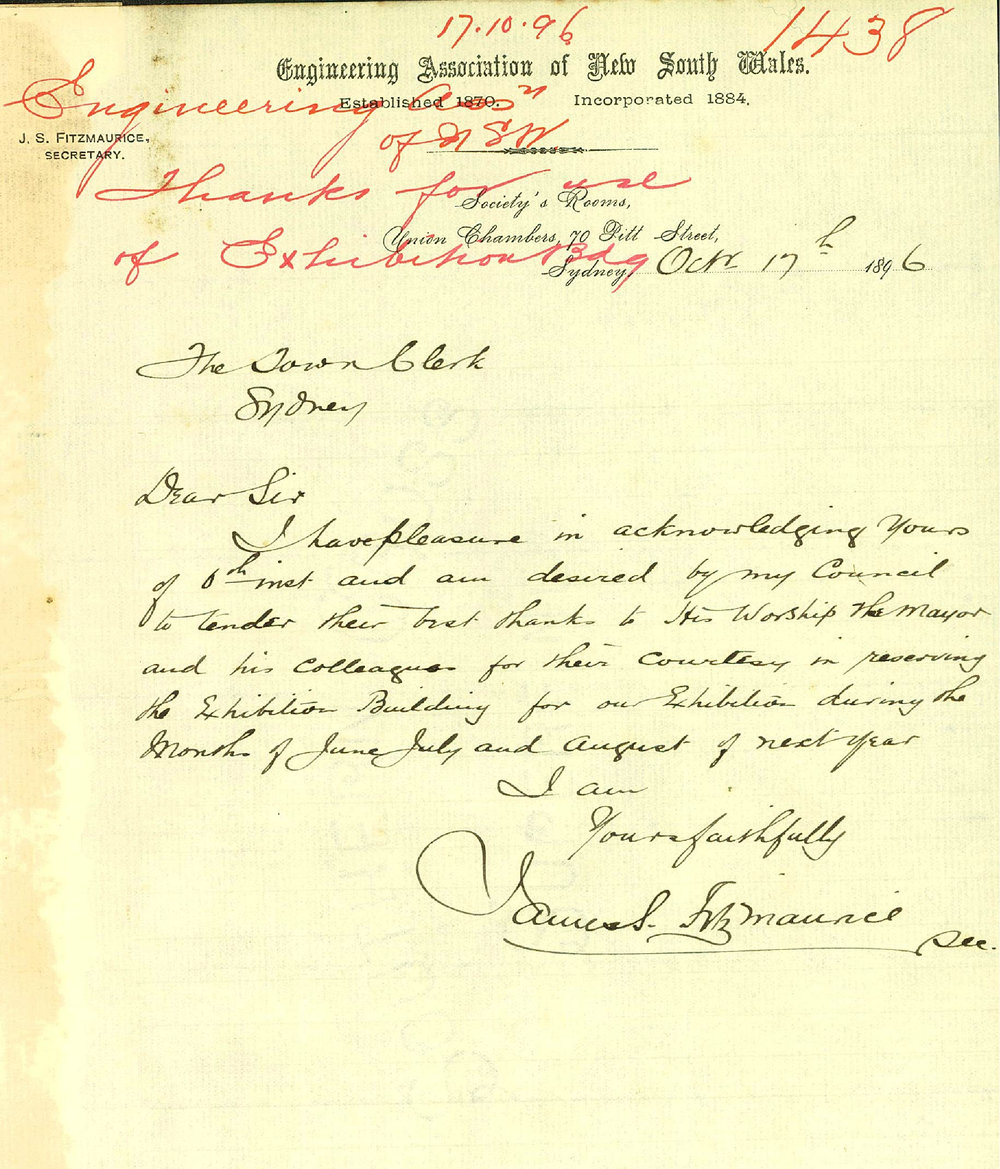 17.10.96
1438
Engineering Association of New South Wales.
Engineering Assn
Established 1870. Incorporated 1884.
of NSW
J. S. FITZMAURICE,
SECRETARY.
Thanks for use
Society's Rooms,
Union Chambers, 70 Pitt Street,
of Exhibition Bdg
Sydney, Oct 17th 1896
The Town Clerk
Sydney
Dear Sir
I have pleasure in acknowledging Yours
of inst and am desired by my Council
to tender their best thanks to His Worship the Mayor
and his colleagues for their courtesy in reserving
the Exhibition Building for our Exhibition during the
Months of June July and August of next Year
I am
Yours faithfully
James S. Fitzmaurice
Sec.